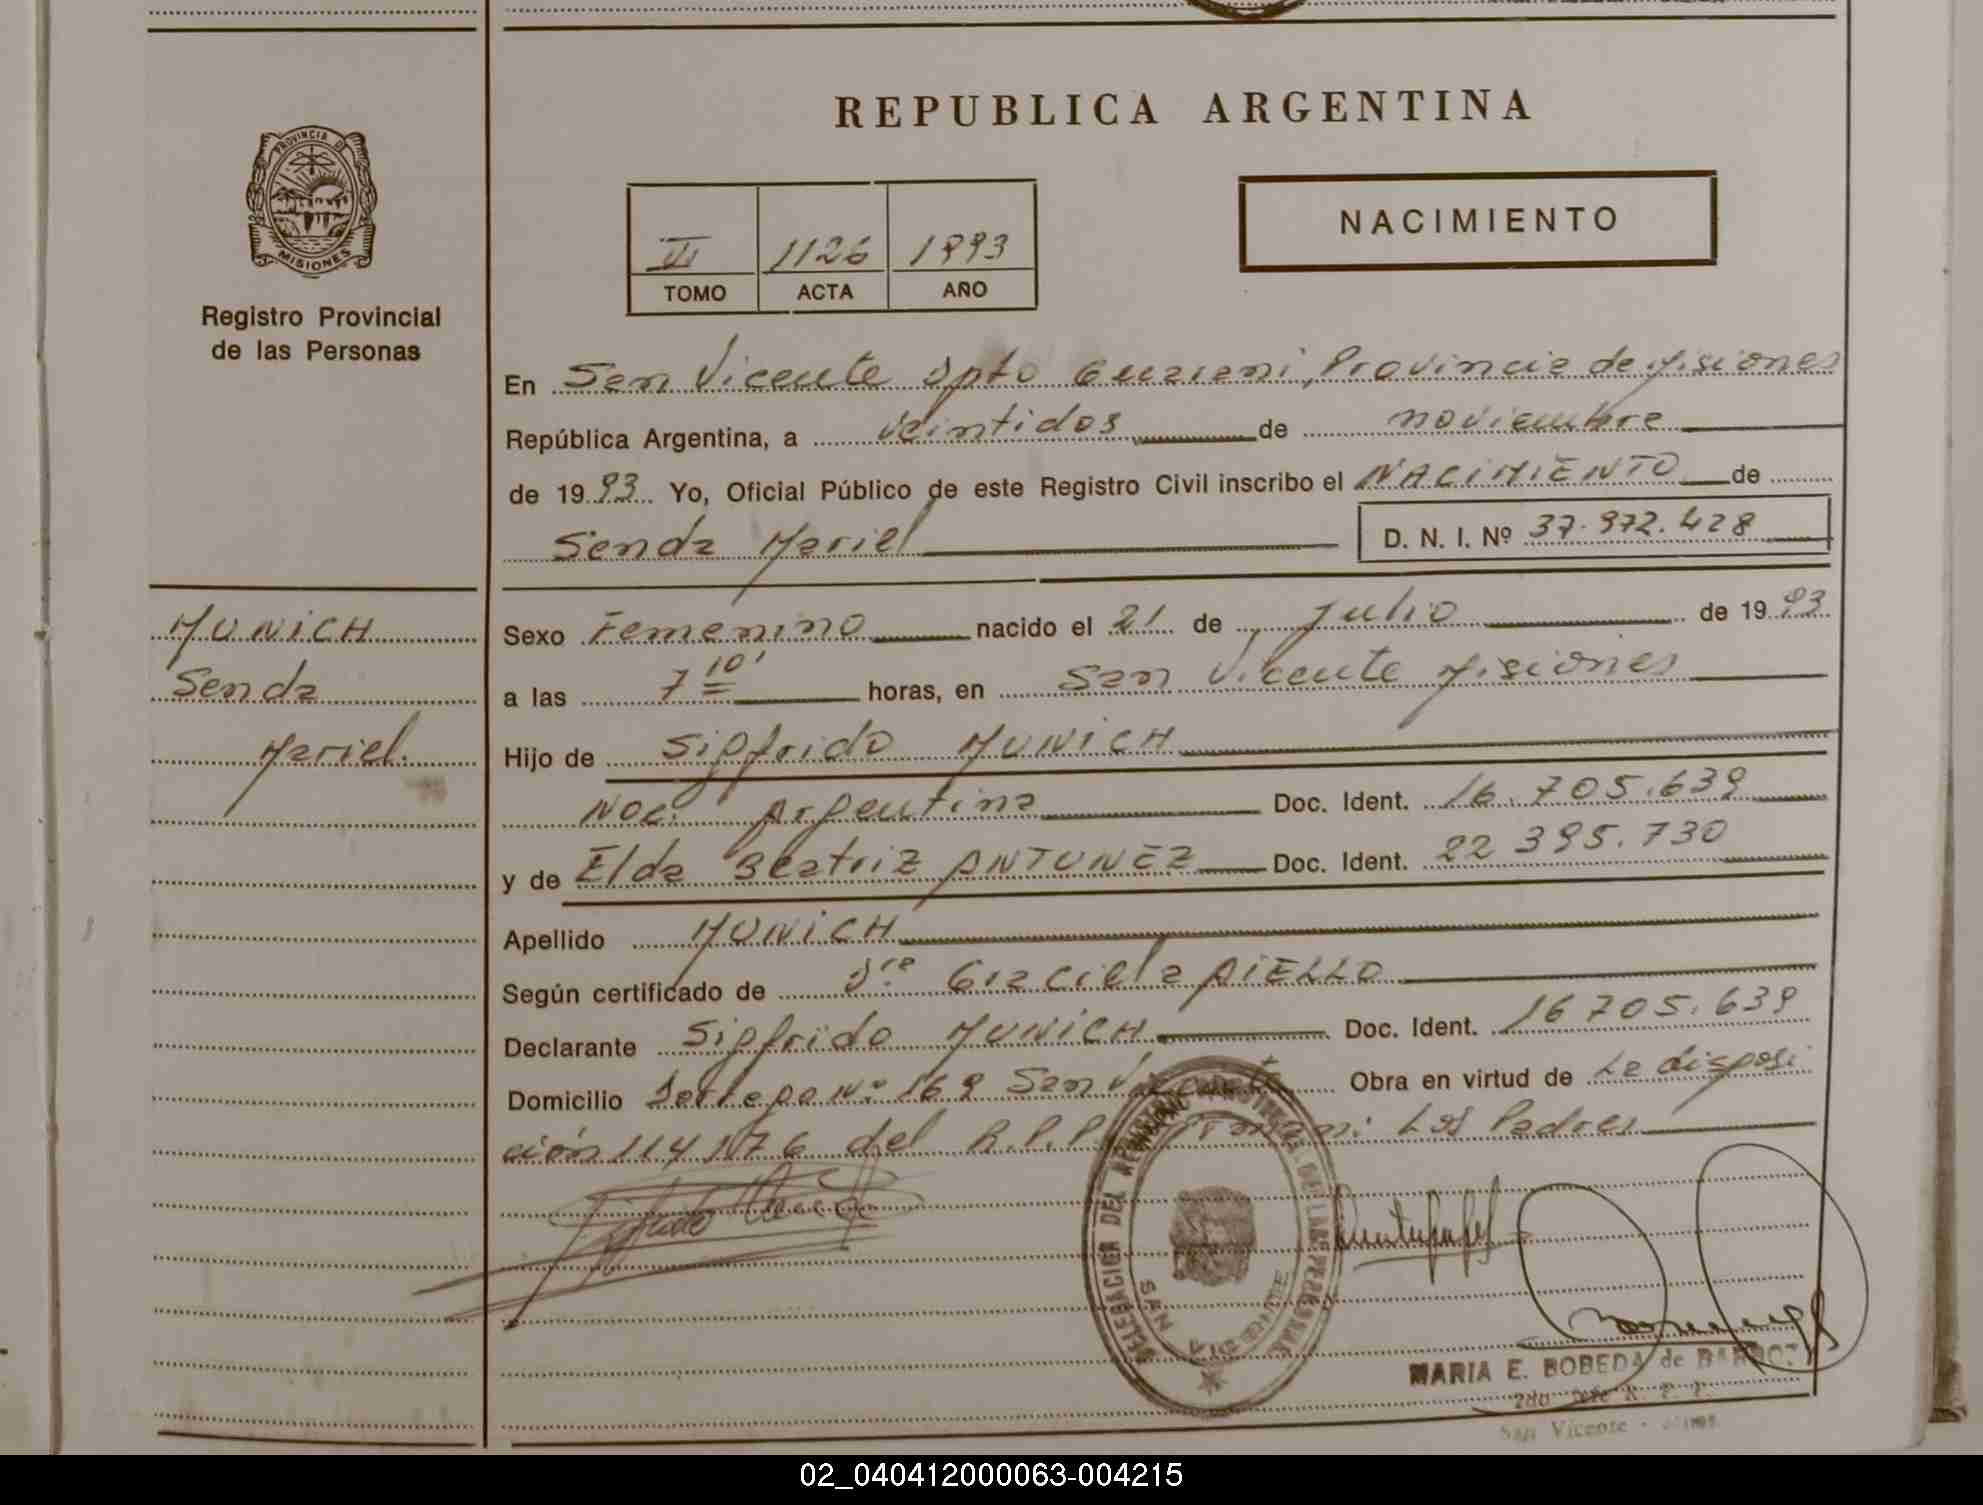 REPUBLICA ARGENTINA
PROVINCIA DE
MISIONES
Registro Provincial
de las Personas
1126 1993
TOMO ACTA AÑO
NACIMIENTO
En San Vicente Dpto Guarani, Provincia de Misiones
República Argentina, a veintidos de noviembre
de 1993 Yo, Oficial Público de este Registro Civil inscribo el NACIMIENTO de
Senda Mariel D. N. I. Nº 37.972.428
MUNICH
Senda
Mariel.
Sexo Femenino nacido el 21 de Julio de 1993
a las 7 10' horas, en San Vicente Misiones
Hijo de Sigfrido MUNICH
Nac. Argentina Doc. Ident. 16.705.639
y de Elda Beatriz ANTUNEZ Doc. Ident. 22 395.730
Apellido MUNICH
Según certificado de Dra Graciela AIELLO
Declarante Sigfrido MUNICH Doc. Ident. 16705.639
Domicilio Nº 169 San Vicente Obra en virtud de La disposi
ción 114/76 del R.P.P. Firman: Los Padres
DELEGACION DEL REGISTRO PROVINCIAL DE LAS PERSONAS
SAN VICENTE
MARIA E. BOBEDA de BARROZ
2do Jefe R. P. P.
San Vicente - Mnes.
02_040412000063-004215